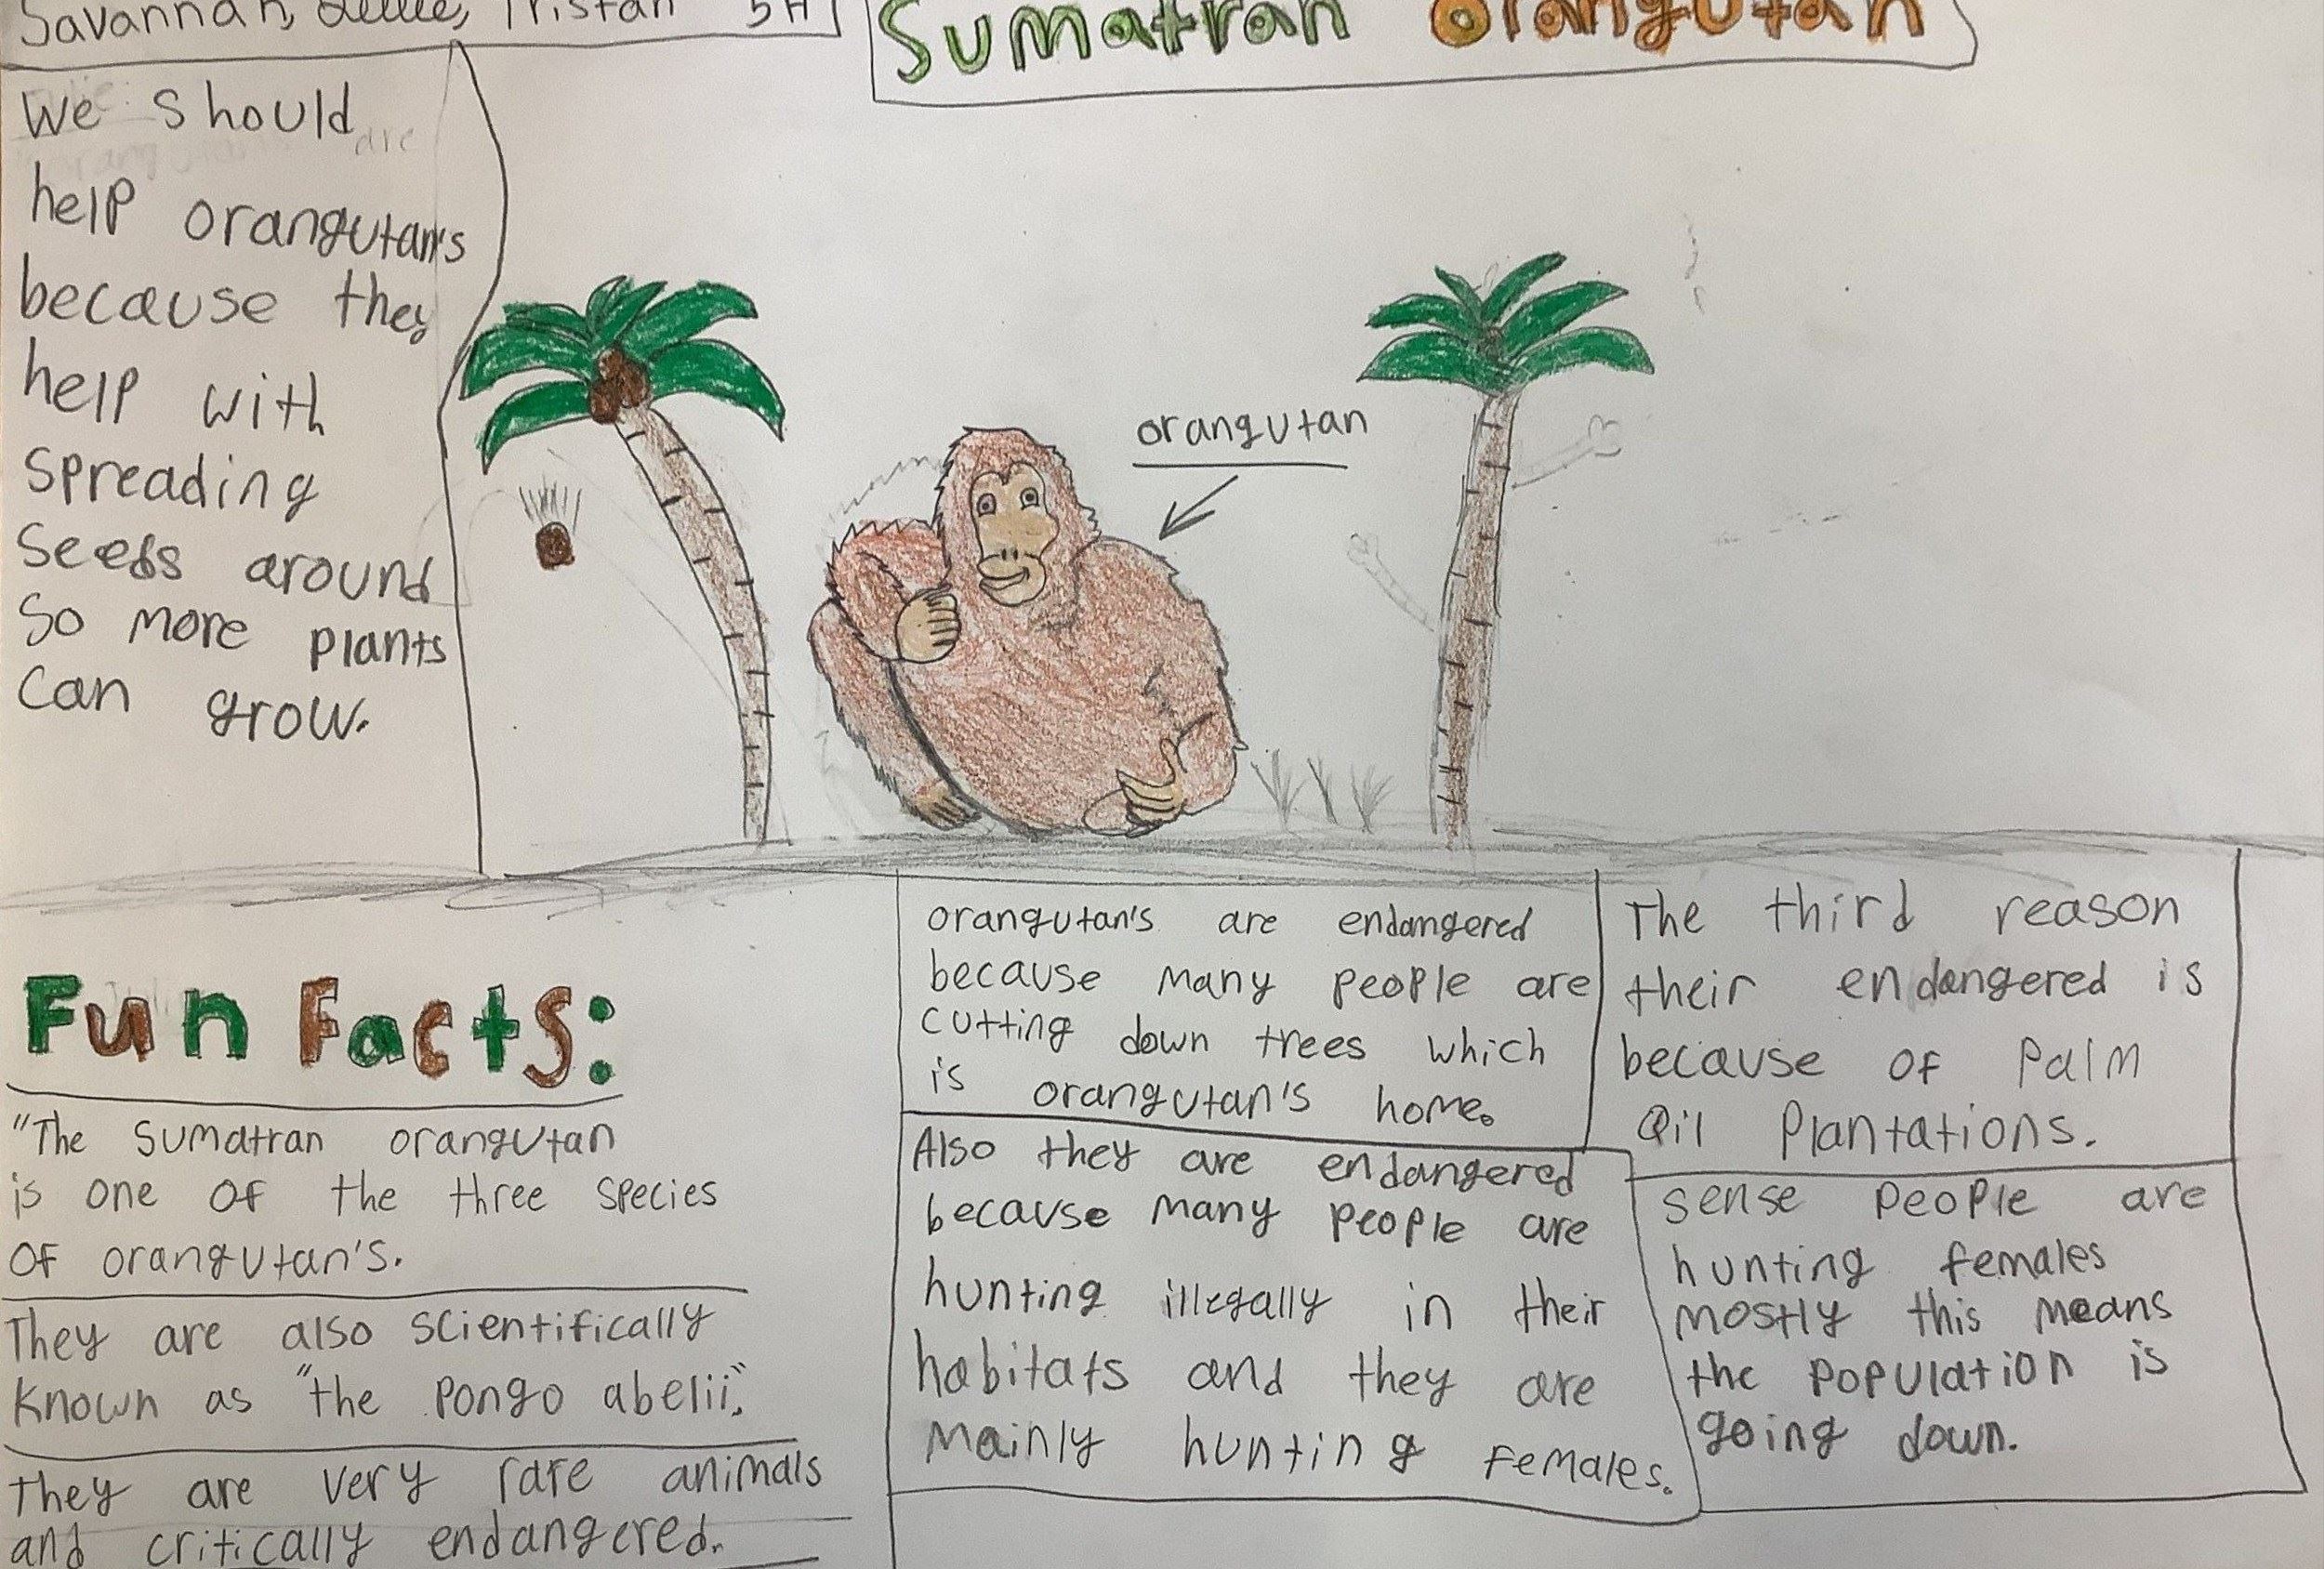 Savannah, Tristan 5H
Sumatran orangutan
We should
help orangutan's
because they
help with
spreading
seeds around
so more plants
can grow.
orangutan
Fun Facts:
"The sumatran orangutan
is one of the three species
of orangutan's.
They are also scientifically
known as "the pongo abelii".
they are very rare animals
and critically endangered.
orangutan's are endangered
because many people are
cutting down trees which
is orangutan's home.
Also they are endangered
because many people are
hunting illegally in their
habitats and they are
mainly hunting females.
The third reason
their endangered is
because of palm
oil plantations.
sense people are
hunting females
mostly this means
the population is
going down.